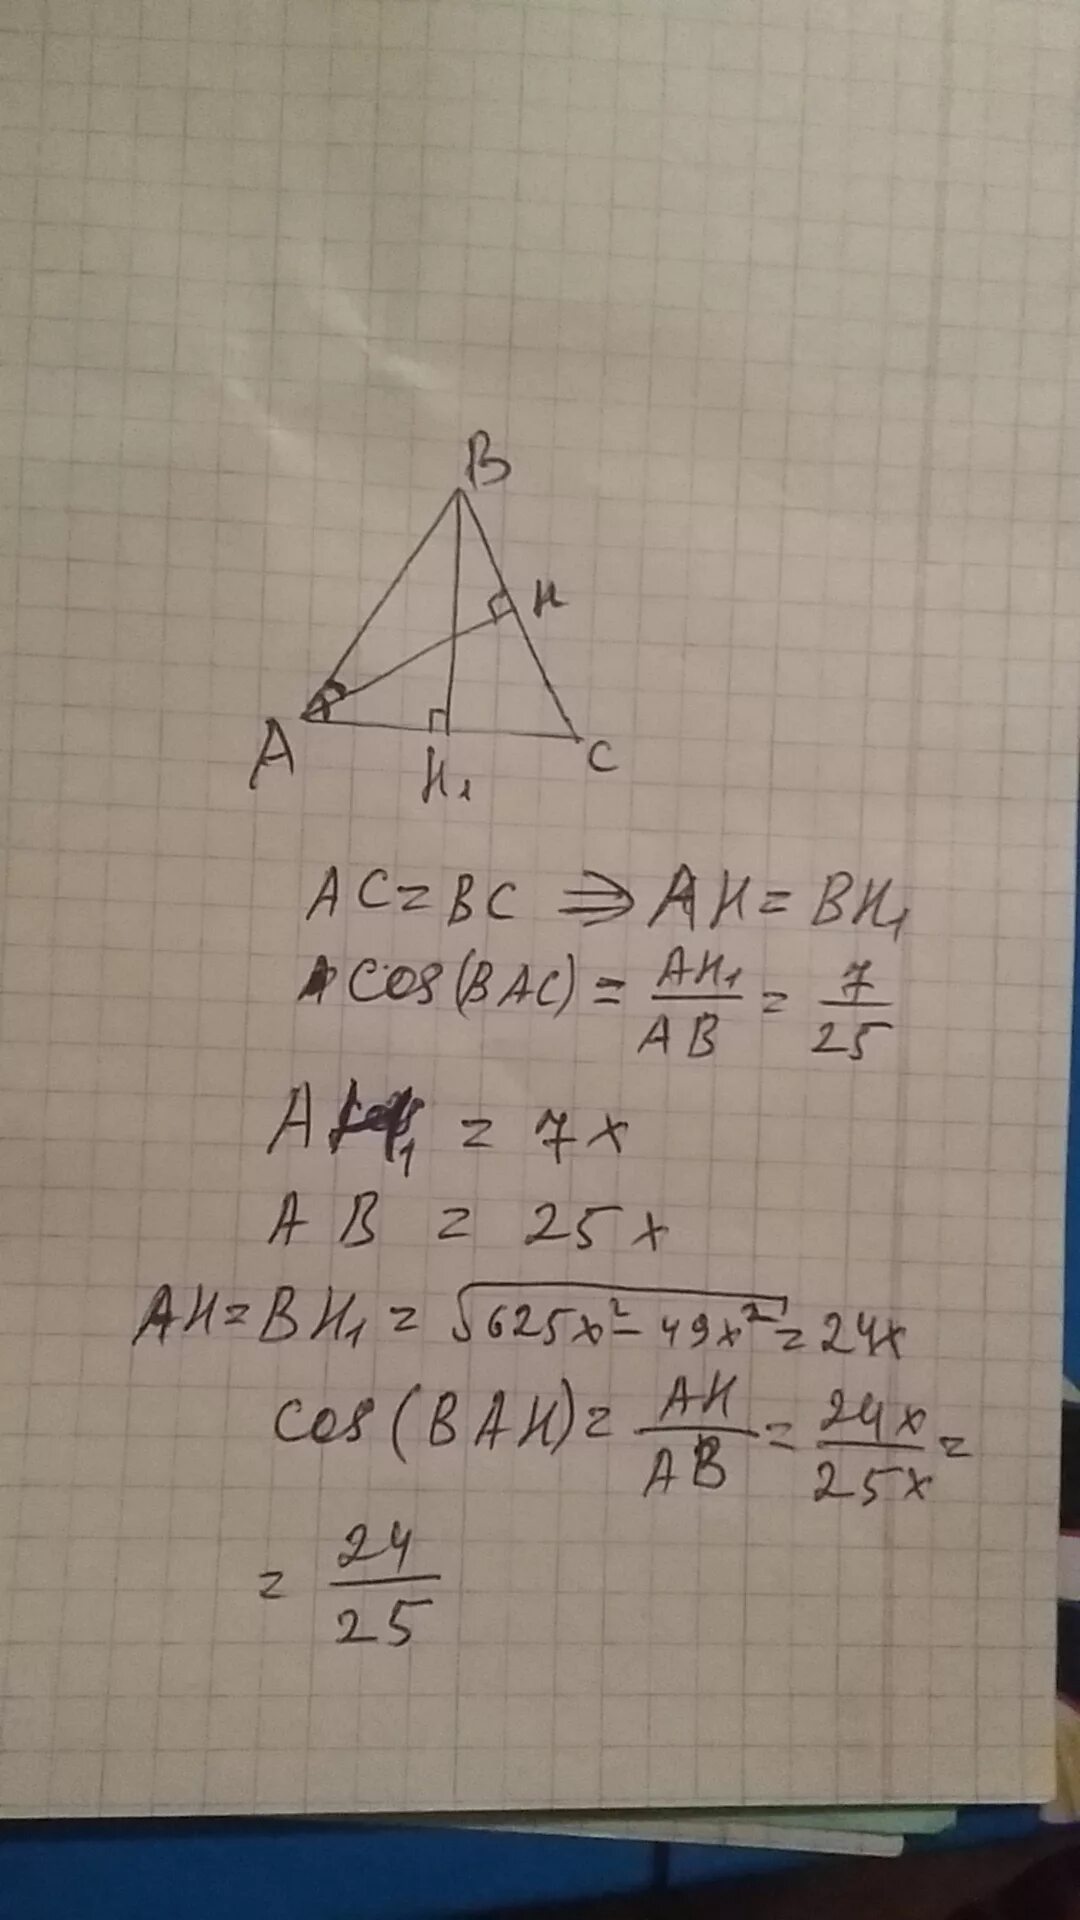 B
H
A
H₁
C
AC = BC ⇒ AH = BH₁
cos(BAC) = AH₁/AB = 7/25
AH₁ = 7x
AB = 25x
AH = BH₁ = √(625x² - 49x²) = 24x
cos(BAH) = AH/AB = 24x/25x =
= 24/25